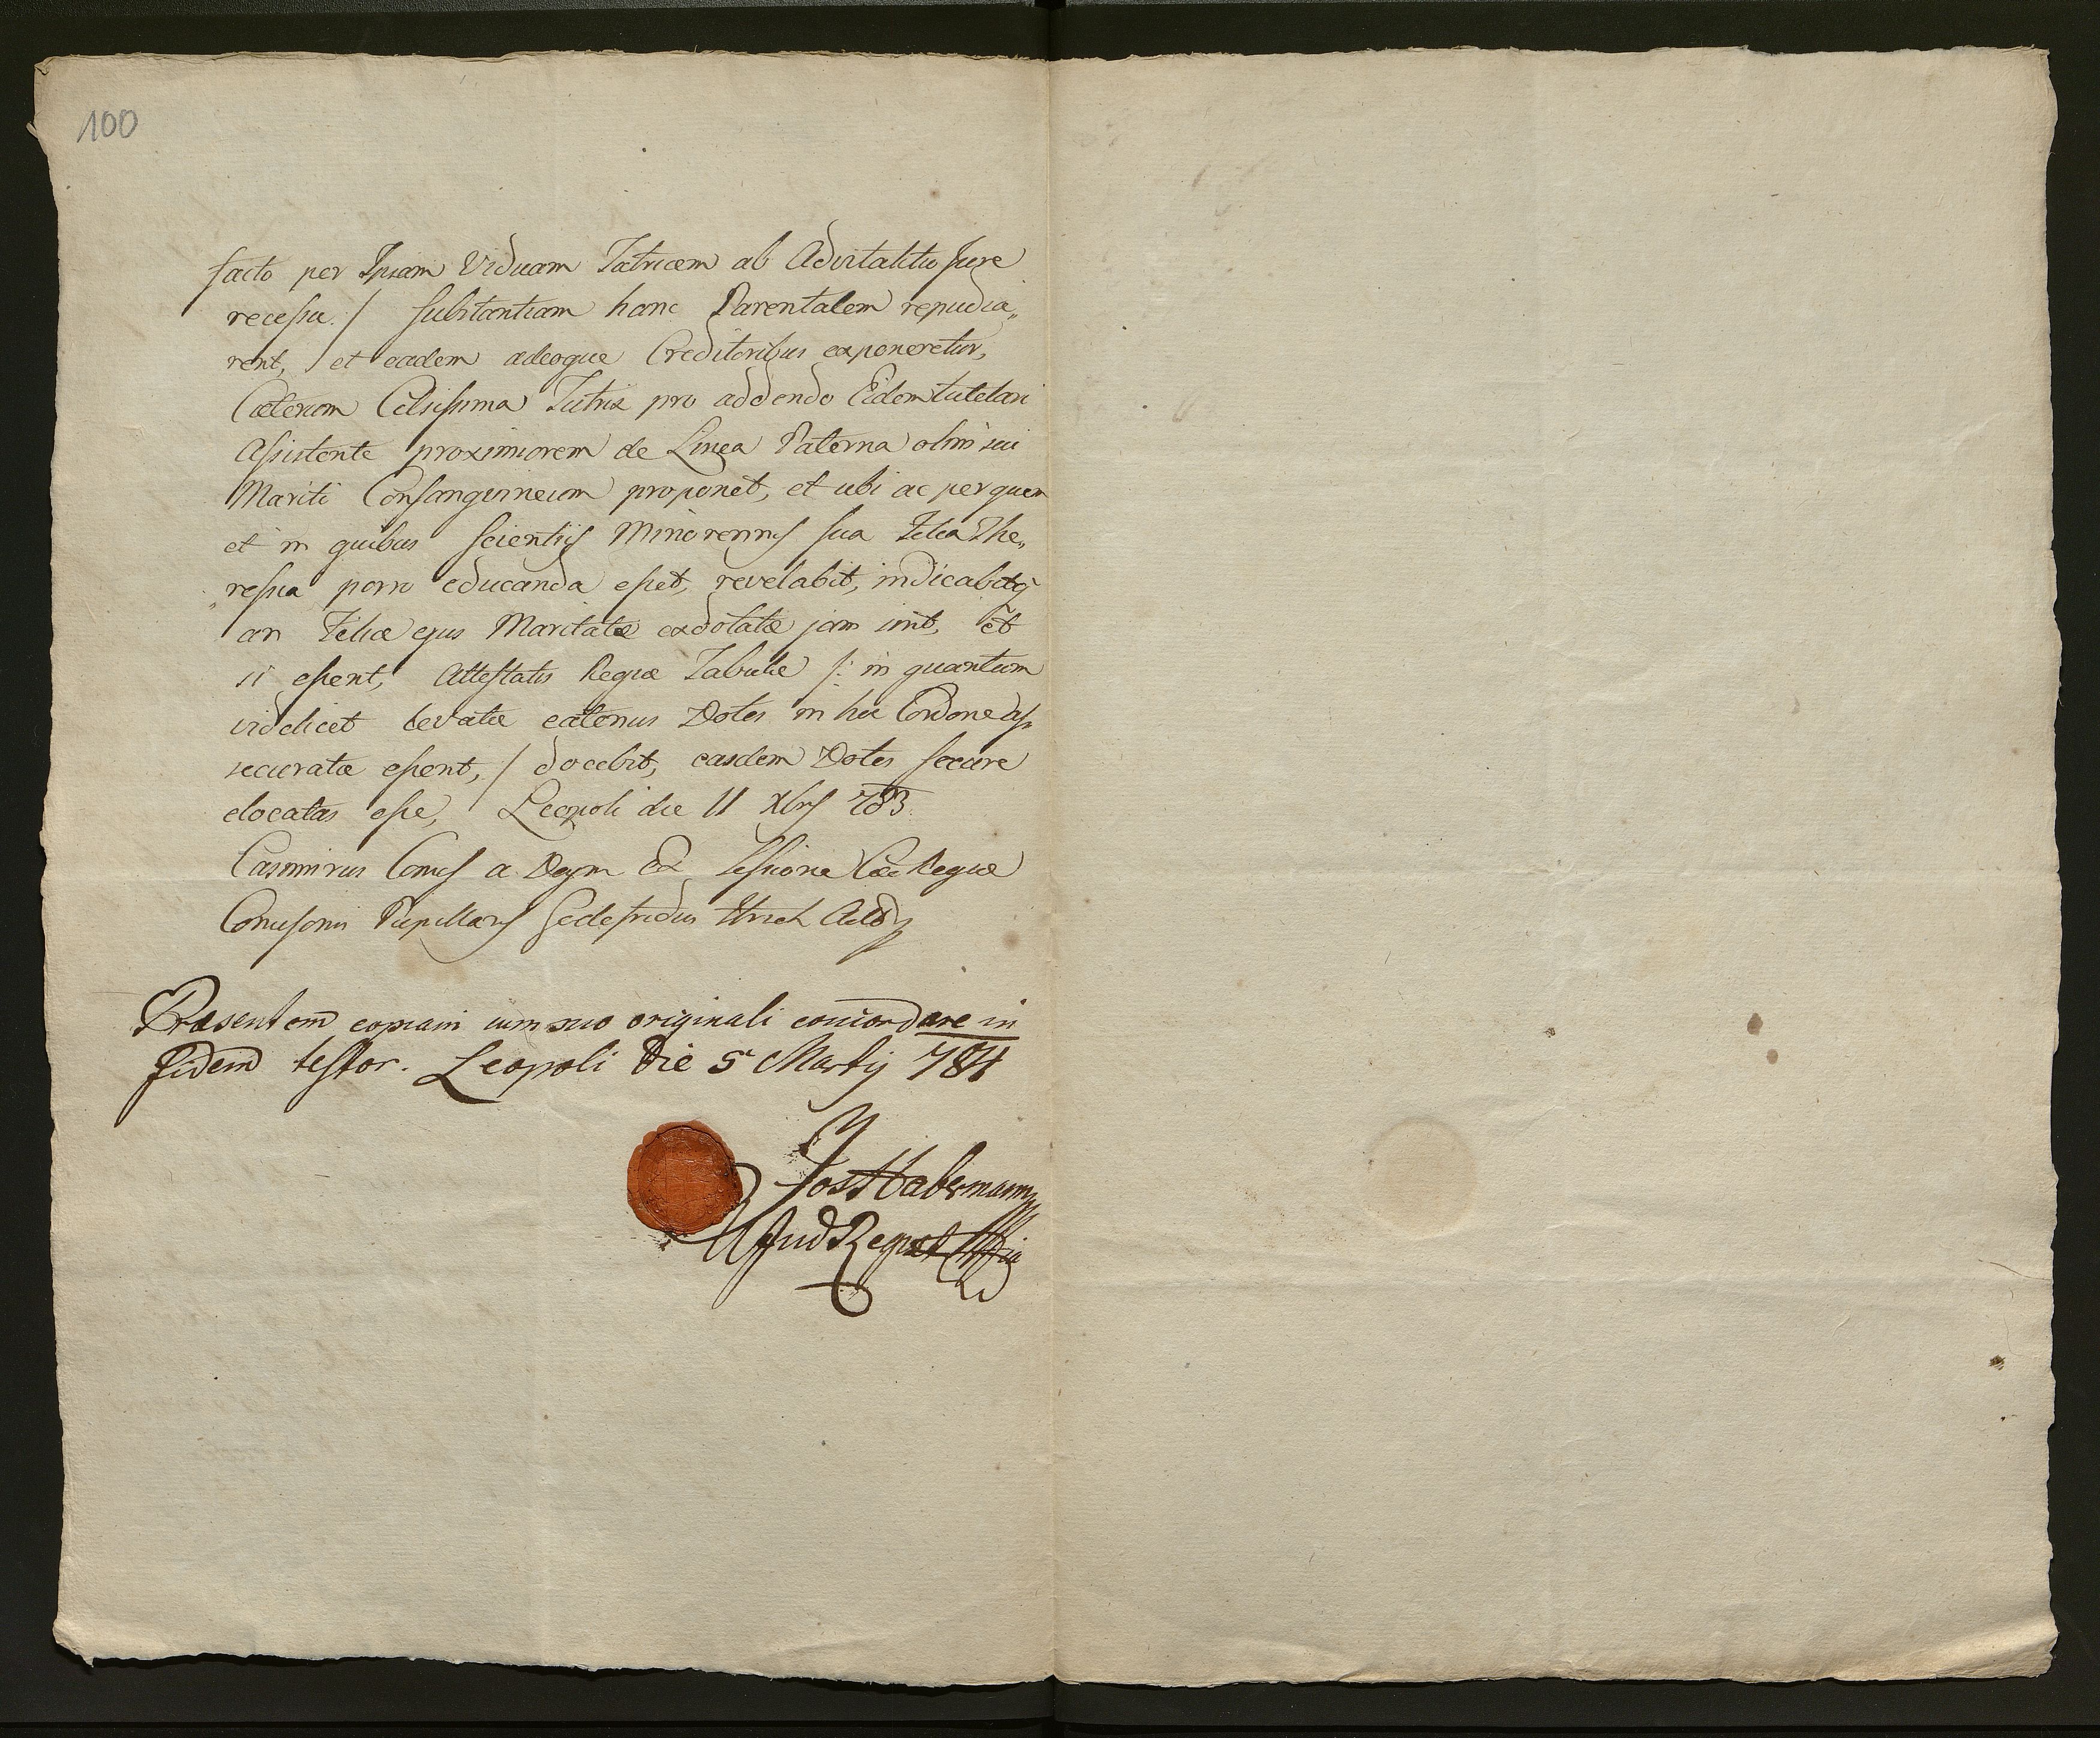 100
facto per Ipsam Viduam Tutricem ab Advitalitio Jure
recessu. / substantiam hanc Parentalem repudia„
rent, et eadem adeoque Creditoribus exponeretur,
Cæterum Celsissima Tutrix pro addendo Eidem tutelari
Assistente proximiorem de Linea Paterna olim sui
Mariti Consanguineum proponet, et ubi ac per quem
et in quibus Scientiis Minorennis sua Filia The„
„ressia porro educanda esset, revelabit, indicabitq
an Filiæ ejus Maritatæ exdotatæ jam sint, et
si essent, Attestatis Regiæ Tabulæ /: in quantum
videlicet levatæ eatenus Dotes in hoc Cordone as„
securatæ essent, / docebit, easdem Dotes secure
elocatas esse, Leopoli die 11 Xbris 783.
Casimirus Comes a Deym Ex Sessione Cæs Regiæ
Comissonis Pupillaris Godefridus Ulrich
Præsentem copiam cum suo originali concordare in
fidem testor. Leopoli die 5 Martij 784
Jos Habermann
Jud Regist